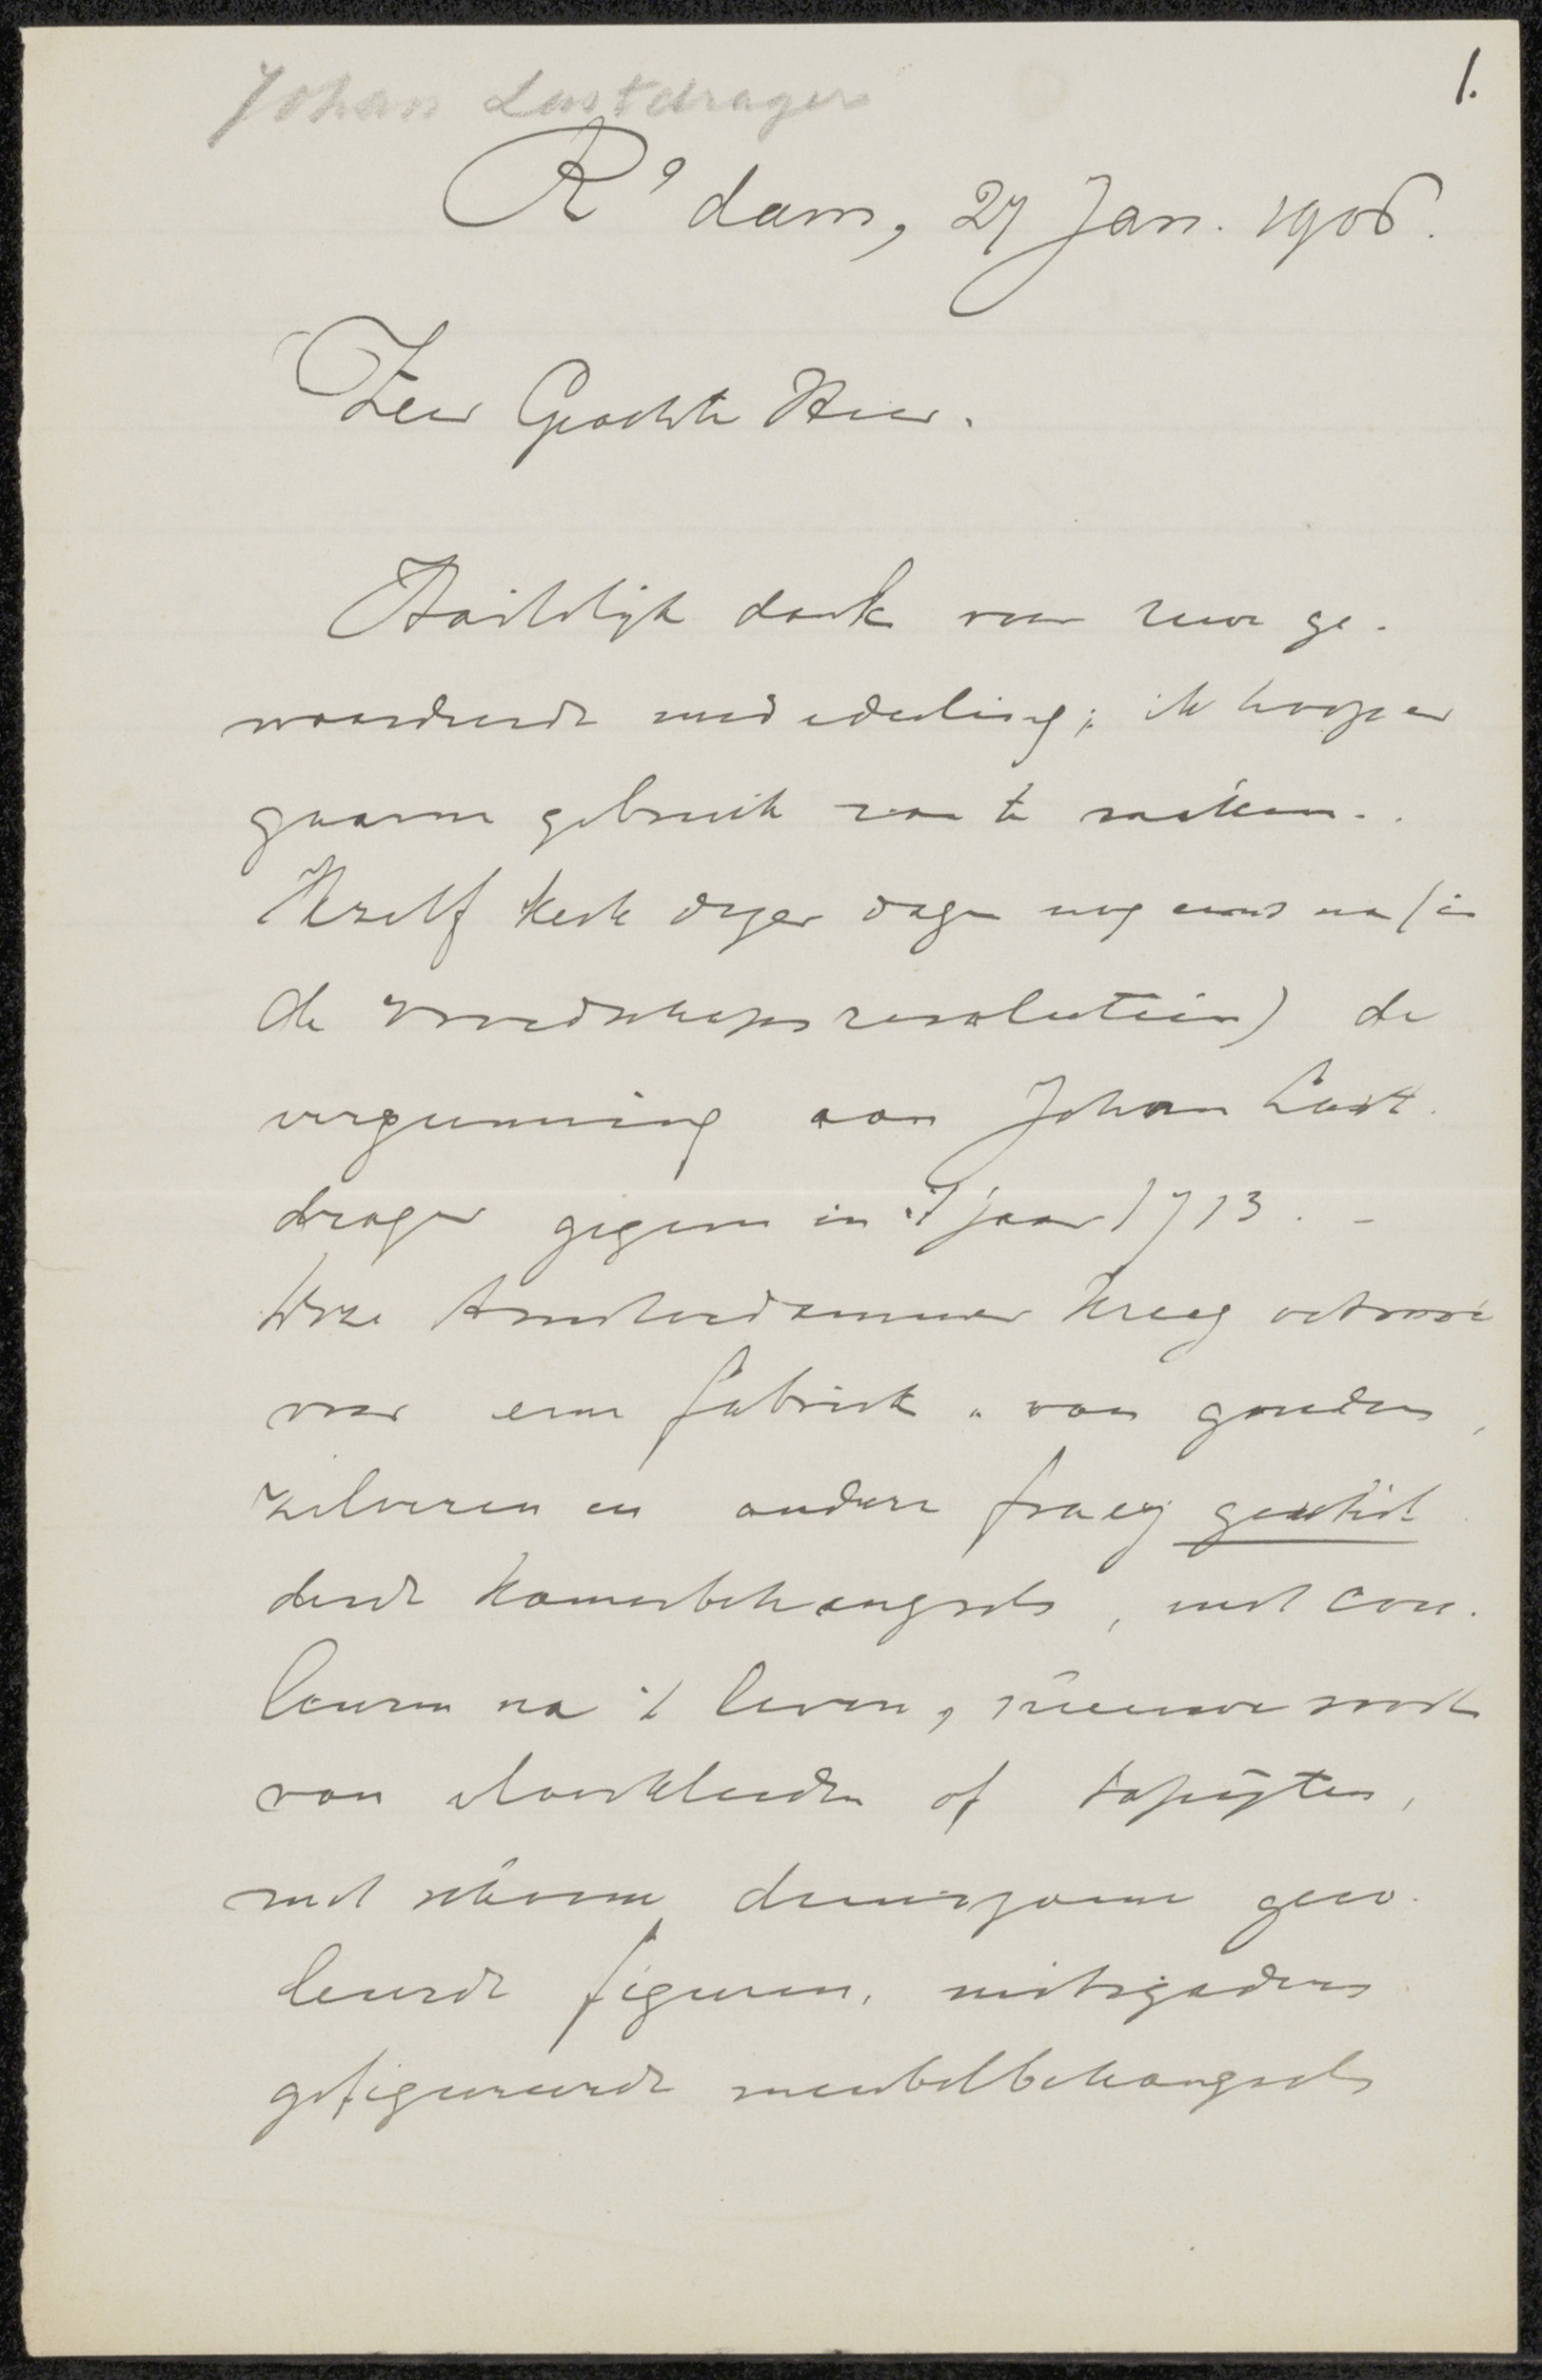 Johan Lastdrager
1.
R'dam, 27 Jan. 1906.
Zeer Geachte Heer.
Hartelijk dank voor uwe ge-
waardeerde mededeeling; ik hoop er
gaarne gebruik van te maken.
Ikzelf keek dezer dagen nog eens na (in
de vroedschapsresolutiën) de
vergunning aan Johan Last-
drager gegeven in 't jaar 1713. -
Deze Amsterdammer kreeg octrooi
voor eene fabriek "van gouden,
zilveren en andere fraey geschil-
derde kamerbehangsels, met cou-
leuren na 't leven, nieuwe soort
van vloerkleeden of tapijten,
met schoone duurzame geco-
leurde figuren, mitsgaders
gefigureerde meubelbehangsels